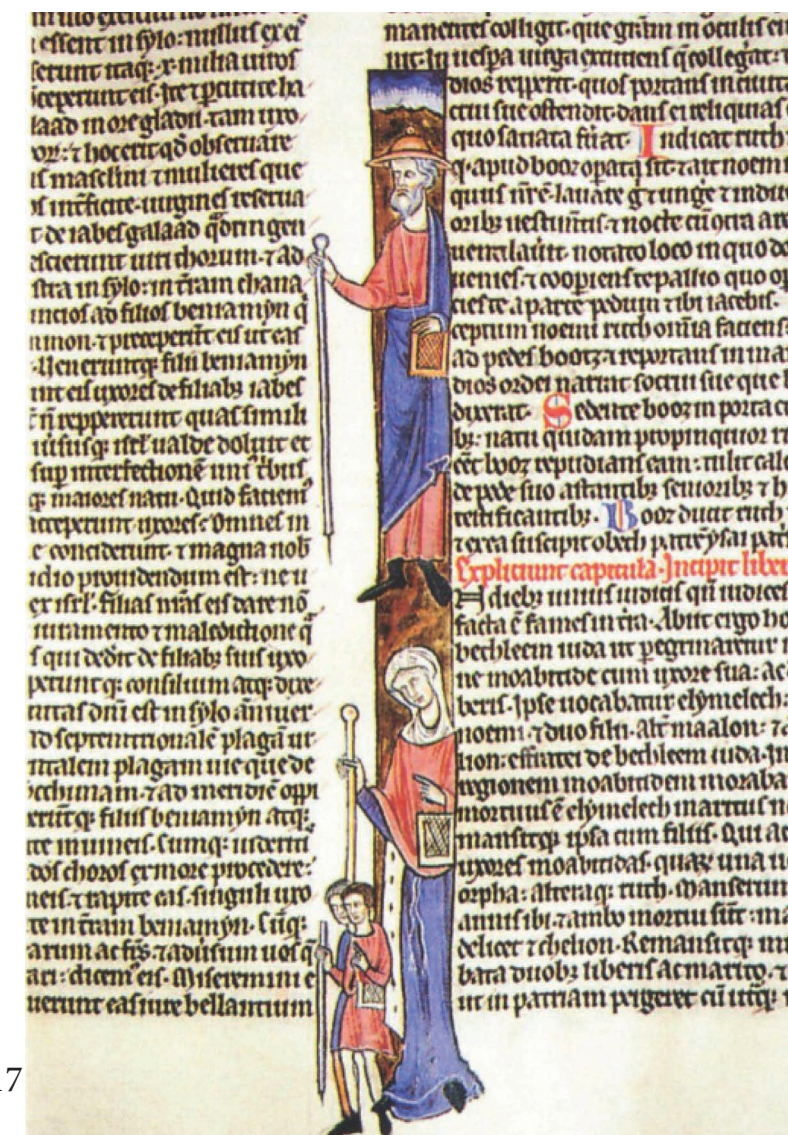 essent in sylo: nullus ex eis
serunt itaq; x. milia uiros
ceperunt eis. Ite ⁊ percutite ha
laad in ore gladii. tam uxo
or: ⁊ hoc erit qd obseruare
is masclini ⁊ mulieres que
s intficite. uirgines reserua
t de iabes galaad qdringen
escierunt uiri thorum. ⁊ ad
stra in sylo: in tram chana
uncios ad filios beniamyn q
mmon. ⁊ preceperūt eis ut eas
Uenerunt q; filii beniamyn
unt eis uxores de filiab; iabes
ñ reppererunt quas simili
uisus q; isrl ualde doluit et
sup interfectionē uni tbus
q; maiores natu. Quid faciem
acceperunt uxores: Omnes in
e conciderunt. ⁊ magna nob
udio prouidendum est: ne u
ex isrl. filias nras eis dare nō
iuramento ⁊ maledictione q
s qui dedit de filiab; suis uxo
perunt q; consilium atq; dixe
nitas dni est in sylo anniuer
ad septentrionale plagā ur
ntalem plagam uie que de
sychimam. ⁊ ad meridiē oppi
erūt q; filiis beniamyn atq;
ite in uineis. Cumq; uideritis
dos choros ex more procedere:
neis. ⁊ rapite eas. singuli uxo
te in tram beniamyn. Cūq;
arum ac frs. ⁊ aduersum uos q
ari: dicem eis. Miseremini e
uerunt eas iure bellantium
manentes colligit. que gram in oculis eiu
nit. In uespa uirga excutiens q collegat: t
dios repperit. quos portans in ciuita
crui sue ostendit. dans ei reliquias
quo saciata fuat. Indicat ruth
q. apud booz opata sit. ⁊ ait noemi
quis nre. lauare g ⁊ unge ⁊ indue
orib; uestimtis. ⁊ nocte cū otra are
uentilauit. notato loco in quo do
uenies. ⁊ cooperiens te pallio quo op
cies te a parte pedum ⁊ ibi iacebis.
ceptum noemi ruth omia faciens
ad pedes booz ⁊ reportans in ma
dios ordei narrat socrui sue que
dixerat. Sedente booz in porta cu
b; natu quidam propinquior
eēt booz repudians eam: tulit calc
de pede suo astantib; seniorib; ⁊ h
testificantib;. Booz ducit ruth
⁊ ex ea suscipit obeth patrē ysai patr
Expliciunt capitula. Incipit liber
In dieb; unius iudicis qn iudices
facta ē fames in tra. Abiit ergo ho
bethleem iuda ut peregrinaretur i
ne moabitide cum uxore sua: ac
beris. Ipse uocabatur elymelech:
noemi. ⁊ duo filii. Alt maalon: ⁊ a
lion: effratei de bethleem iuda. In
regionem moabitidem moraba
mortuus ē elymelech maritus n
mansitq; ipsa cum filiis. Qui ac
uxores moabitidas. quaꝝ una u
orpha: altera q; ruth. Manserun
annis ibi. ⁊ ambo mortui sūt: ma
delicet ⁊ chelion. Remansit q; mu
bata duob; liberis ac marito. ⁊
ut in patriam pergeret cū utraq;
17